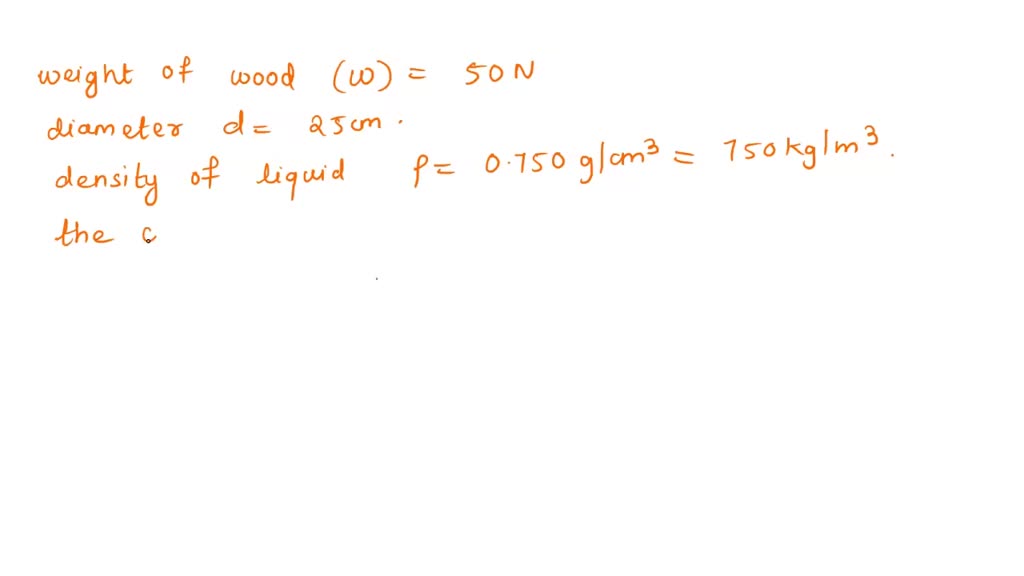 weight of wood (w) = 50 N
diameter d = 25 cm.
density of liquid ρ = 0.750 g/cm³ = 750 kg/m³.
the c